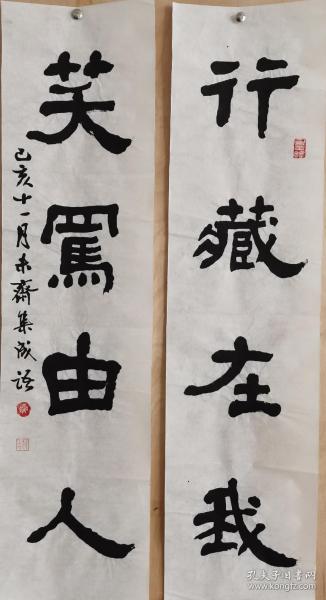 行藏在我
笑罵由人
己亥十一月未齋集成語
孔夫子旧书网